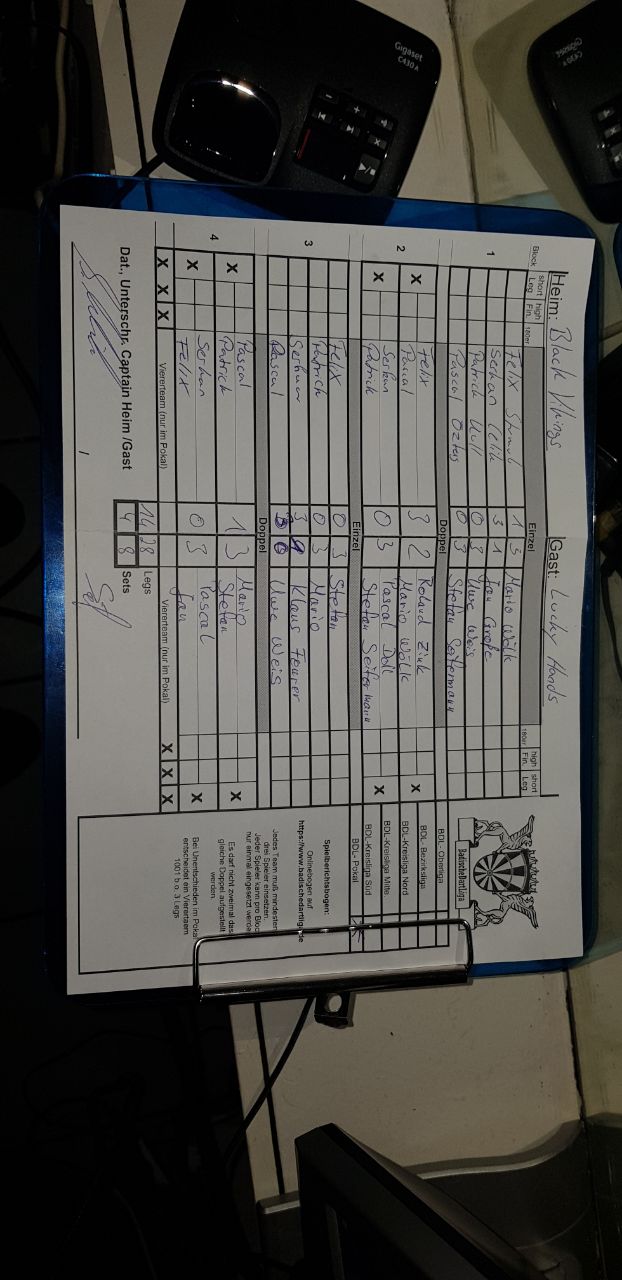 Gigaset
C430A
Heim: Black Vikings Gast: Lucky Hands
Block short Leg high Fin. 180er Einzel 180er high Fin. short Leg
1
Felix 1 3 Mario Wölk
Serkan Celik 3 1 Jan Große
Patrick Wull 0 3 Uwe Weis
Pascal 0 3 Stefan Seitermann
Doppel
2
X Felix 3 2 Roland Zink X
Pascal Mario Wölk
X Serkan 0 3 Pascal Doll X
Patrick Stefan Seitermann
Einzel
3
Felix 0 3 Stefan
Patrick 0 3 Mario
Serkan 3 Klaus Feurer
Pascal Uwe Weis
Doppel
4
X Pascal 1 3 Mario X
Patrick Stefan
X Serkan 0 3 Pascal X
Felix Jan
X X X Viererteam (nur im Pokal) Viererteam (nur im Pokal) X X X
14 28 Legs
4 8 Sets
Dat., Unterschr. Captain Heim /Gast
Badische Dartliga
BDL- Oberliga
BDL- Bezirksliga
BDL-Kreisliga Nord
BDL-Kreisliga Mitte
BDL-Kreisliga Süd
BDL- Pokal X
Spielberichtsbogen:
Onlinebogen auf
https://www.badischedartliga.de
Jedes Team muß mindestens
drei Spieler einsetzen.
Jeder Spieler kann pro Block
nur einmal eingesetzt werden
Es darf nicht zweimal das
gleiche Doppel aufgestellt
werden.
Bei Unentschieden im Pokal
entscheidet ein Viererteam
1001 b.o. 3 Legs